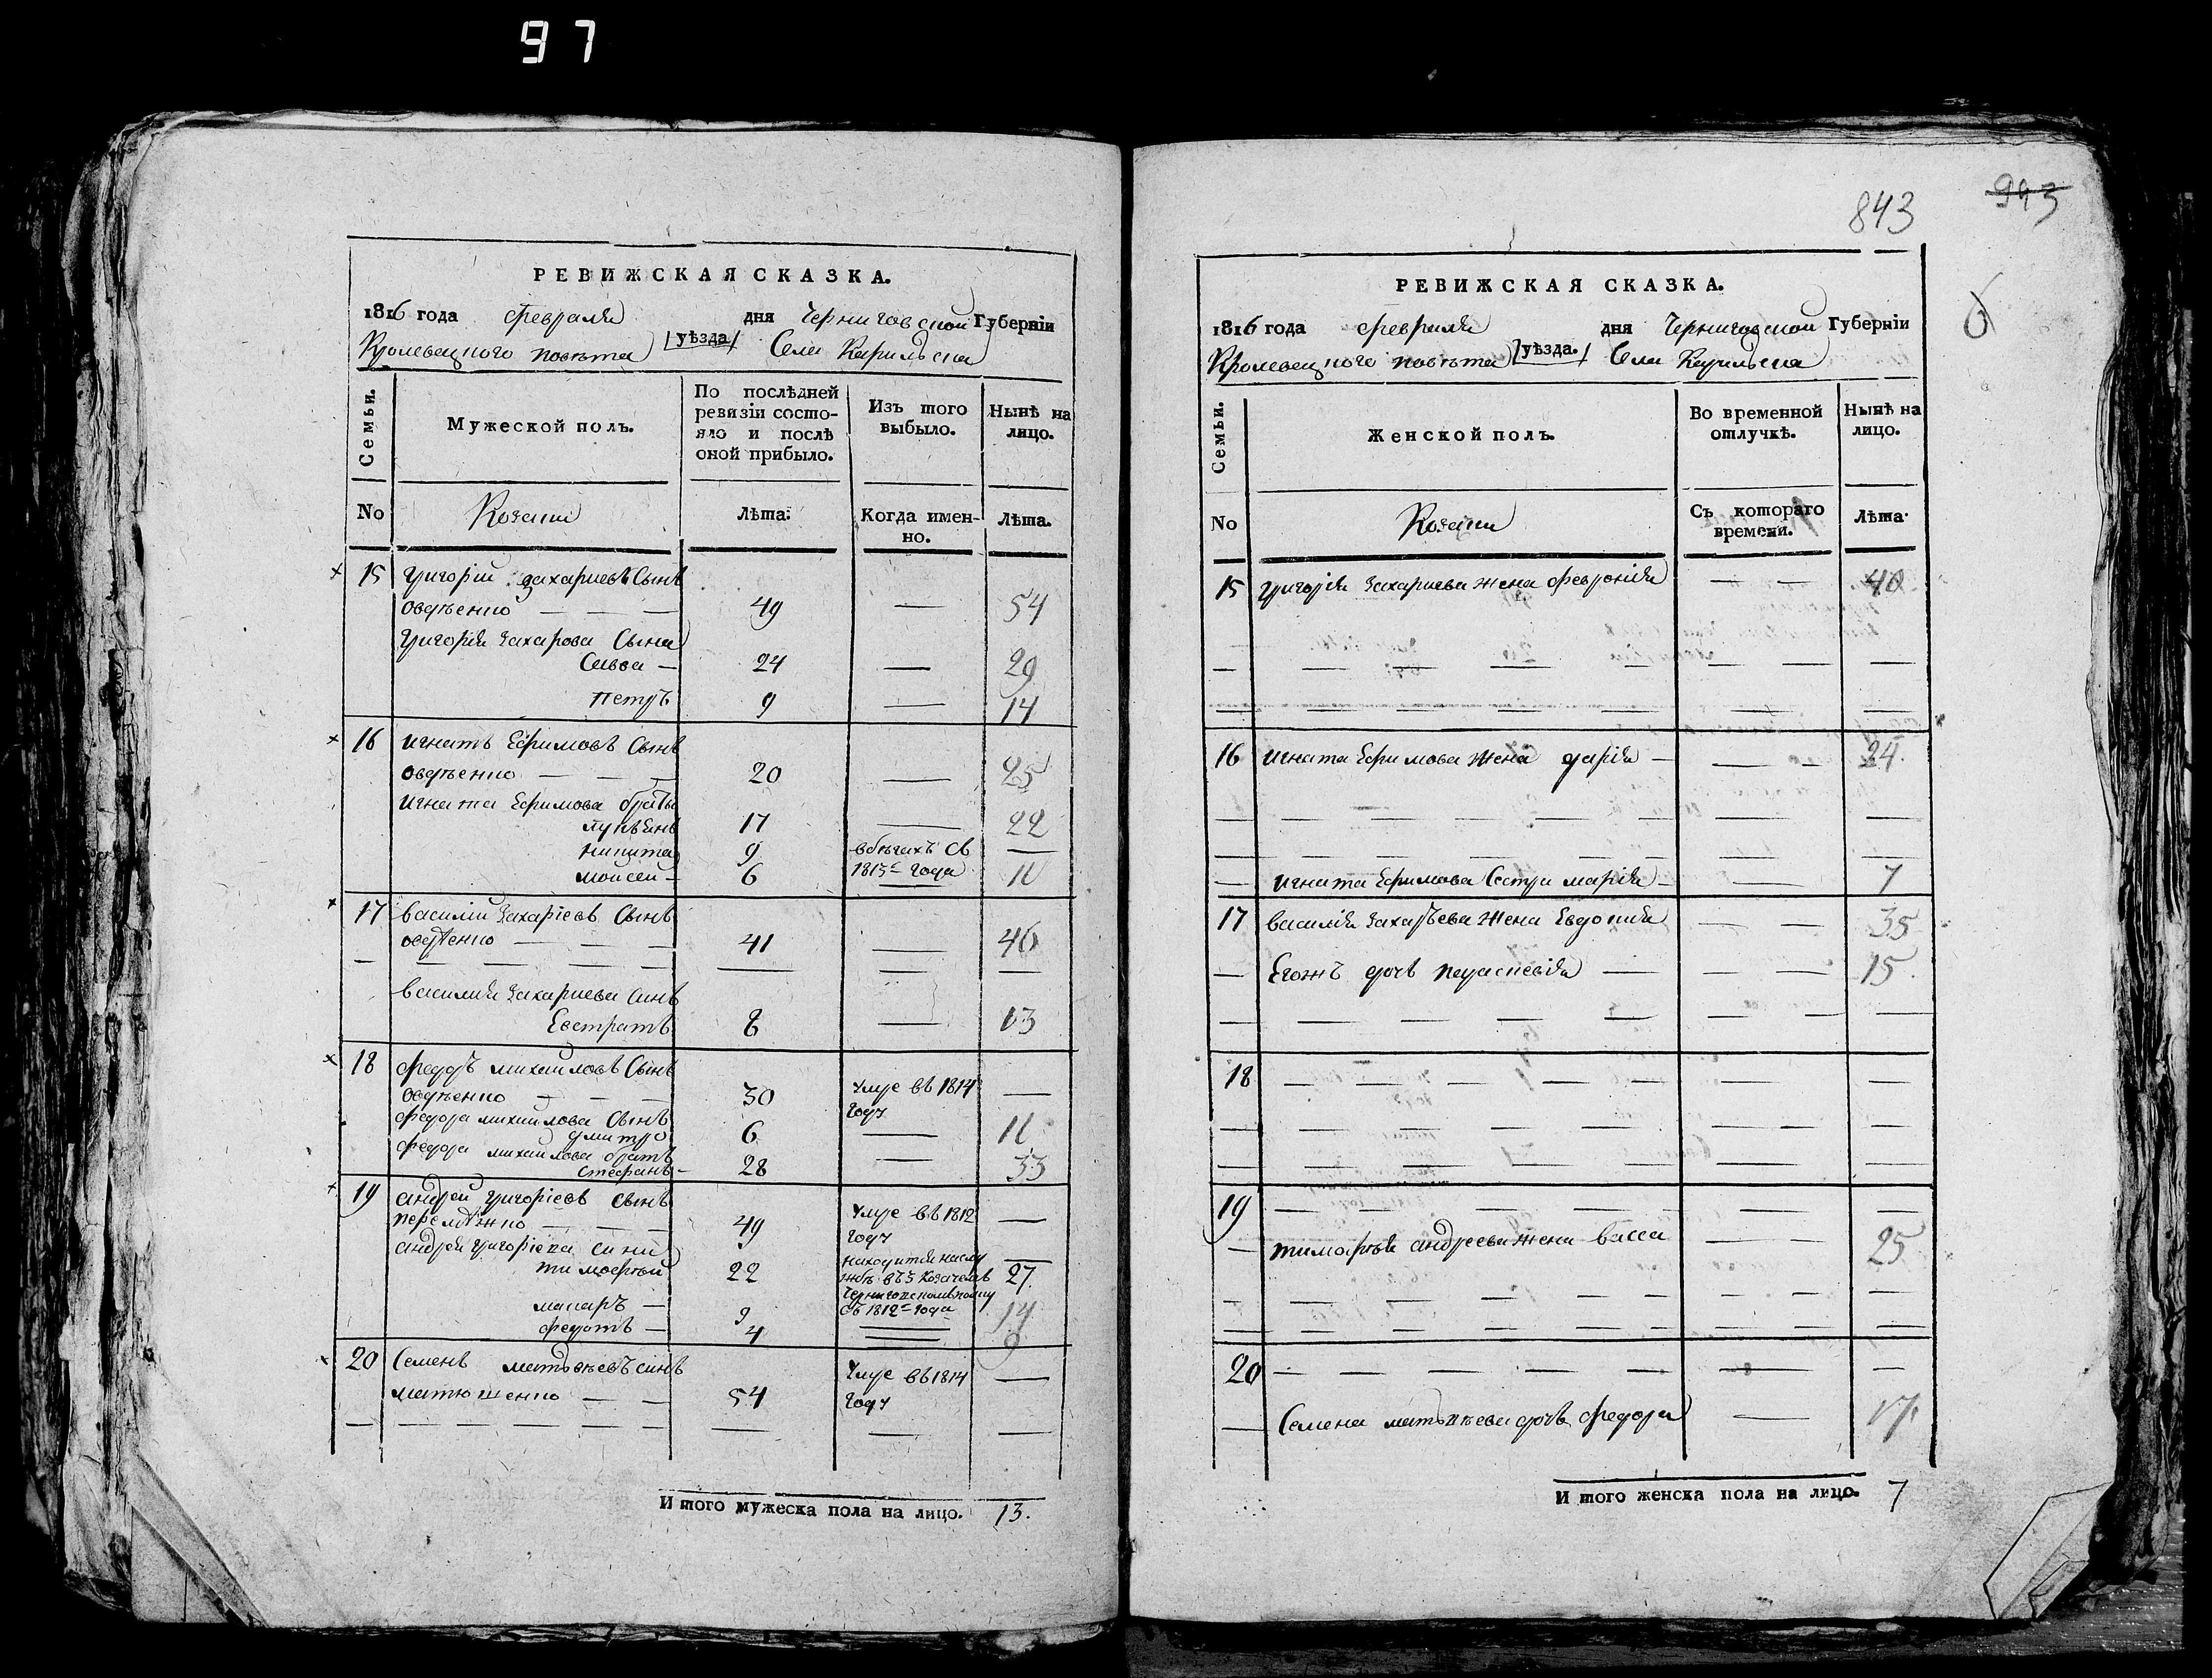 97
РЕВИЖСКАЯ СКАЗКА.
1816 года февраля дня Черниговской Губерніи
Кролевецкого повѣта уѣзда Села Карильска
Семьи.
Мужеской полъ.
По послѣдней ревизіи состояло и послѣ оной прибыло.
Изъ того выбыло.
Нынѣ на лицо.
No
Козаки
Лѣта.
Когда именно.
Лѣта.
15 григорій захариевъ Сынъ
овдѣенко — — — 49 — 54
григорія захарова Сына
Савва — 24 — 29
петръ 9 — 14
16 игнатъ Ефимовъ Сынъ
овдѣенко — — — 20 — 25
игната Ефимова браты
лукъянъ 17 — 22
никита 9 вбѣгахъ съ —
моисей — 6 1813г года 11
17 василій захаріевъ Сынъ
овдѣенко — — — 41 — 46
— — — — — — — —
василия захариева синъ
Евстратъ 8 — 13
18 федоръ михаиловъ Сынъ
овдѣенко — — — 30 умре въ 1814 —
году
федора михаилова Сынъ
дмитро 6 — 11
федора михаилова братъ
стефанъ — 28 — 33
19 андрей григоріевъ Сынъ
49 умре въ 1812 —
году
андрея григоріева сини
тимофѣй 22 27
макаръ — 9 съ 1812г года 14
федотъ — 4 — 9
20 Семенъ матвѣевъ синъ
матюшенко — — 54 умре въ 1814 —
году
— — — — — — — —
И того мужеска пола на лицо. 13.
843
943
6
РЕВИЖСКАЯ СКАЗКА.
1816 года февраля дня Черниговской Губерніи
Кролевецкого повѣта уѣзда. Села Карильска
Семьи.
Женской полъ.
Во временной отлучкѣ.
Нынѣ на лицо.
No
Козаки
Съ котораго времени.
Лѣта.
15 григорія захариева жена феврония — — 40
— — — — — — — —
— — — — — — — —
16 игната Ефимова жена дарія — — — 24.
— — — — — — — —
— — — — — — — —
— игната Ефимова Сестра марія — — 7
17 василія захарьева жена Евдокия — — 35
— Егожъ дочь параскевія — — — 15
— — — — — — — —
18 — — — — — — — —
— — — — — — — —
— — — — — — — —
19 — — — — — — — —
— тимофѣя андреева жена васса — — 25
— — — — — — — —
— — — — — — — —
20 — — — — — — — —
— Семена матвѣева дочь федора — 17
И того женска пола на лицо. 7